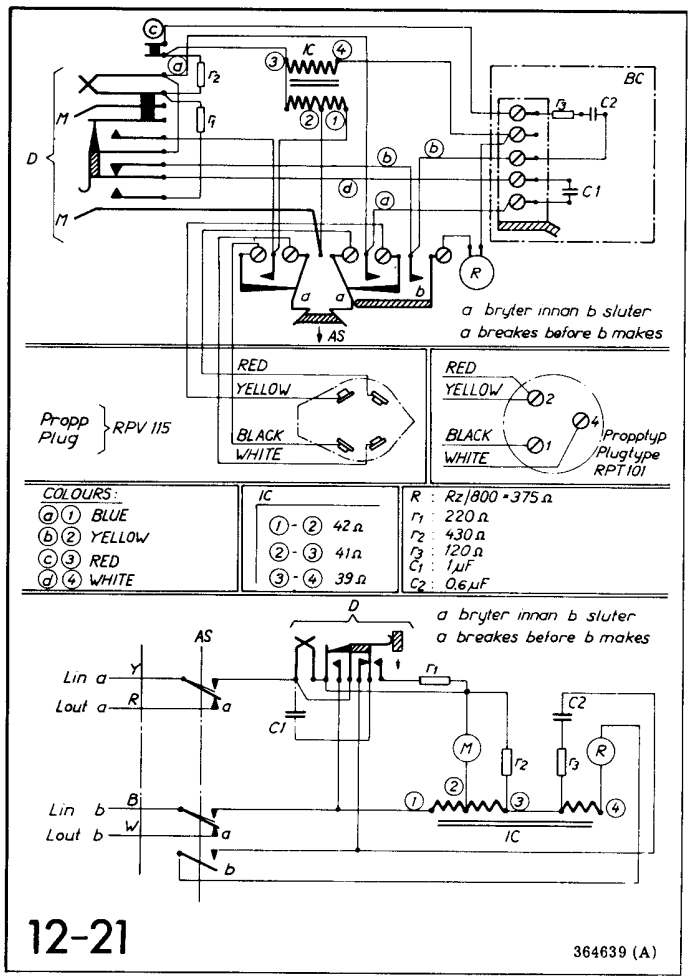 c
IC
3
4
d
r2
2
1
M
r1
D
b
b
d
a
M
BC
r3
C2
C1
R
a
a
b
AS
a bryter innan b sluter
a breakes before b makes
RED
YELLOW
BLACK
WHITE
Propp
Plug
RPV 115
RED
YELLOW
BLACK
WHITE
2
4
1
Propptyp
Plugtype
RPT 101
COLOURS:
a 1 BLUE
b 2 YELLOW
c 3 RED
d 4 WHITE
IC
1 - 2 42 Ω
2 - 3 41 Ω
3 - 4 39 Ω
R : Rz/800 = 375 Ω
r1 : 220 Ω
r2 : 430 Ω
r3 : 120 Ω
C1 : 1 µF
C2 : 0.6 µF
D
a bryter innan b sluter
a breakes before b makes
AS
Lin a Y
Lout a R
a
C1
r1
M
r2
C2
r3
R
1
2
3
4
IC
Lin b B
Lout b W
a
b
12-21
364639 (A)